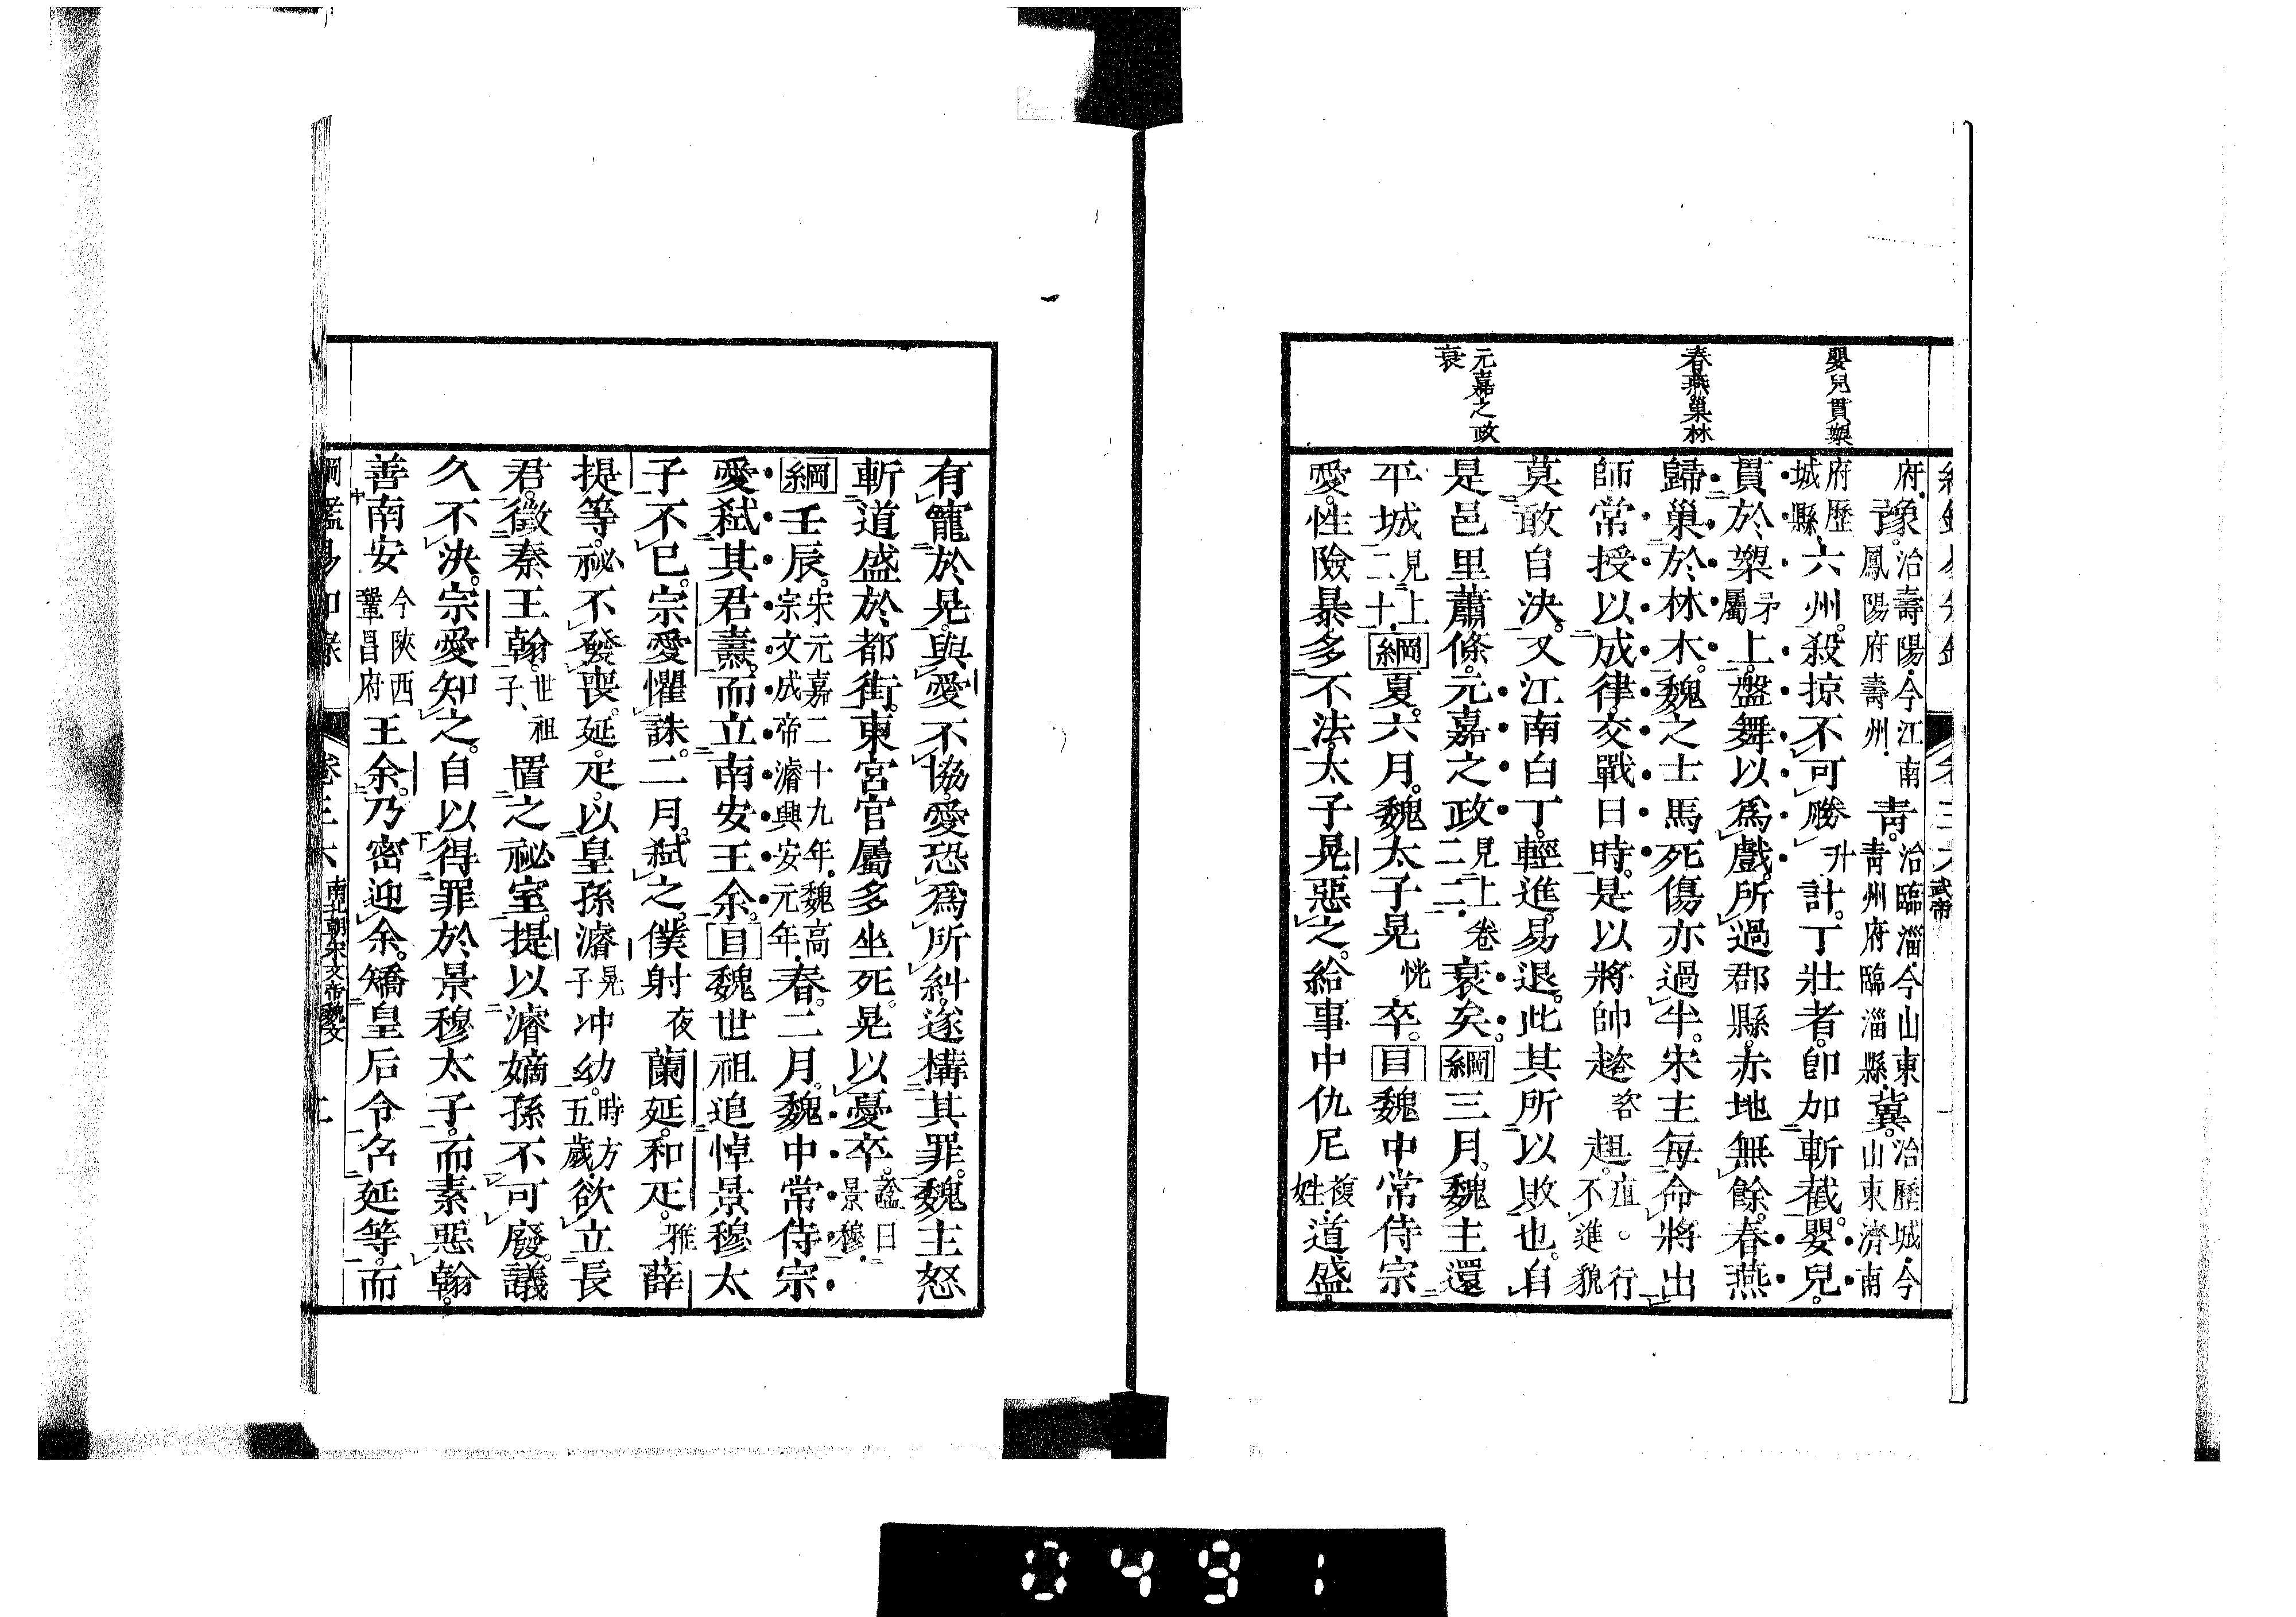 嬰兒貫槊
春燕巢林
元嘉之政
衰
武帝
府豫治壽陽今江南鳳陽府壽州靑治臨淄今山東靑州府臨淄縣冀治歷城今山東濟南
府歷城縣六州殺掠不可勝升計丁壯者卽加斬截嬰兒
貫於槊矛屬上盤舞以爲戲所過郡縣赤地無餘春燕
歸巢於林木魏之士馬死傷亦過半宋主每命將出
師常授以成律交戰日時是以將帥趑咨趄疽。行不進貌
莫敢自決又江南白丁輕進易退此其所以敗也自
是邑里蕭條元嘉之政見上卷二二衰矣綱三月魏主還
平城見上二十綱夏六月魏太子晃恍卒目魏中常侍宗
愛性險暴多不法太子晃惡之給事中仇尼複姓道盛
有寵於晃與愛不協愛恐爲所糾遂構其罪魏主怒
斬道盛於都街東宮官屬多坐死晃以憂卒諡曰景穆
綱壬辰宋元嘉二十九年魏高宗文成帝濬興安元年春二月魏中常侍宗
愛弑其君燾而立南安王余目魏世祖追悼景穆太
子不已宗愛懼誅二月弑之僕射夜蘭延和疋雅薛
提等祕不發喪延疋以皇孫濬晃子冲幼時方五歲欲立長
君徵秦王翰世祖子置之祕室提以濬嫡孫不可廢議
久不決宗愛知之自以得罪於景穆太子而素惡翰
善南安今陝西鞏昌府王余乃密迎余矯皇后令名延等而
綱鑑易知錄 卷三六 南北朝宋文帝魏文
0491